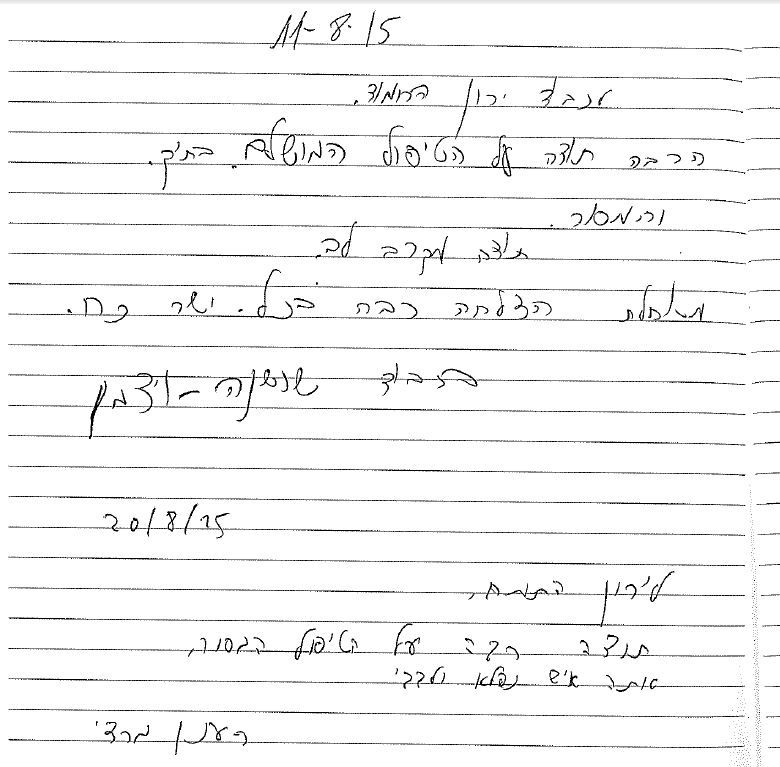 11-8-15
לכבוד ירון החמוד.
הרבה תודה על הטיפול המושלם. בתיק.
והמסור.
תודה מקרב לב
מאחלת הצלחה רבה בכל. ישר כח.
בכבוד שושנה - ויצמן
20/8/15
לירון התותח,
תודה רבה על הטיפול המסור,
אתה איש נפלא ולבבי
רענן מרצ'